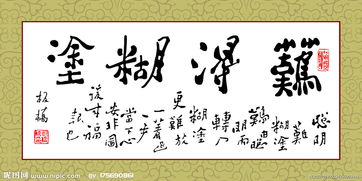 難得糊塗
聰明
難
糊塗
難由聰
明而
轉入
糊塗
更難放
一著退
一步
當下心
安非圖
後来福
報也
板橋
昵图网 www.nipic.com